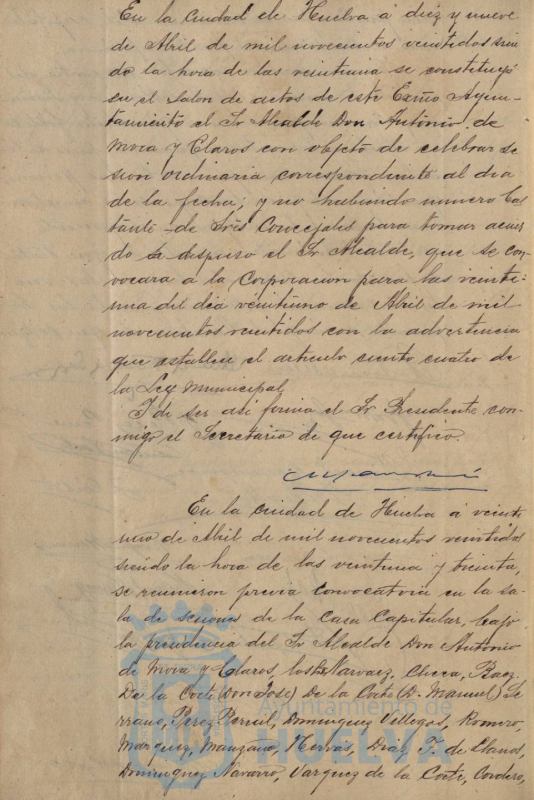 En la ciudad de Huelva á diez y nueve
de Abril de mil novecientos veintidos sien
do la hora de las veintiuna se constituyó
en el Salon de actos de este Excmo Ayun-
tamiento el Sr Alcalde Don Antonio de
Mora y Claros con objeto de celebrar se
sion ordinaria correspondiente al dia
de la fecha; y no habiendo numero bas
tante de Sres Concejales para tomar acuer
do dispuso el Sr Alcalde, que se con
vocara a la Corporacion para las veinti-
una del dia veintiuno de Abril de mil
novecientos veintidos con la advertencia
que establece el articulo ciento cuatro de
la Ley Municipal
I de ser asi firma el Sr Presidente con-
migo el Secretario de que certifico.
En la ciudad de Huelva á veinti
uno de Abril de mil novecientos veintidos
siendo la hora de las veintiuna y treinta,
se reunieron previa convocatoria en la sa-
la de sesiones de la Casa Capitular, bajo
la presidencia del Sr Alcalde Don Antonio
de Mora y Claros, los Sres Narvaez, Checa, Baez,
De la Corte (Don Jose) De la Corte (D. Manuel) Se
rrano, Perez Barreil, Dominguez Villegas, Romero,
Marquez, Manzano, Hervas, Diaz, F. de Llanos,
Dominguez Navarro, Vazquez de la Corte, Cordero,
Ayuntamiento de
HUELVA